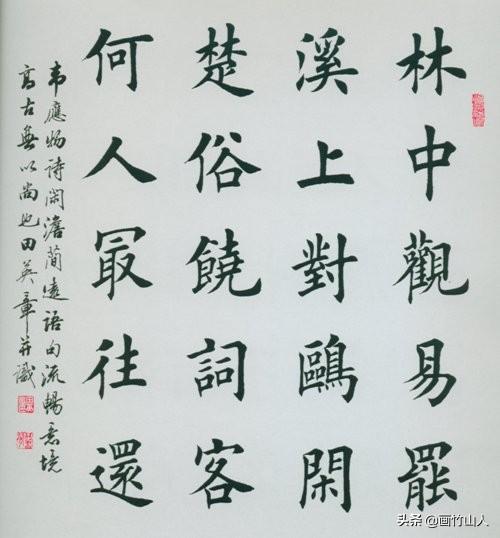 林中觀易罷
溪上對鷗閑
楚俗饒詞客
何人最往還
韋應物詩閑澹簡遠語句流暢意境
高古無以尚也田英章并識
头条 @画竹山人